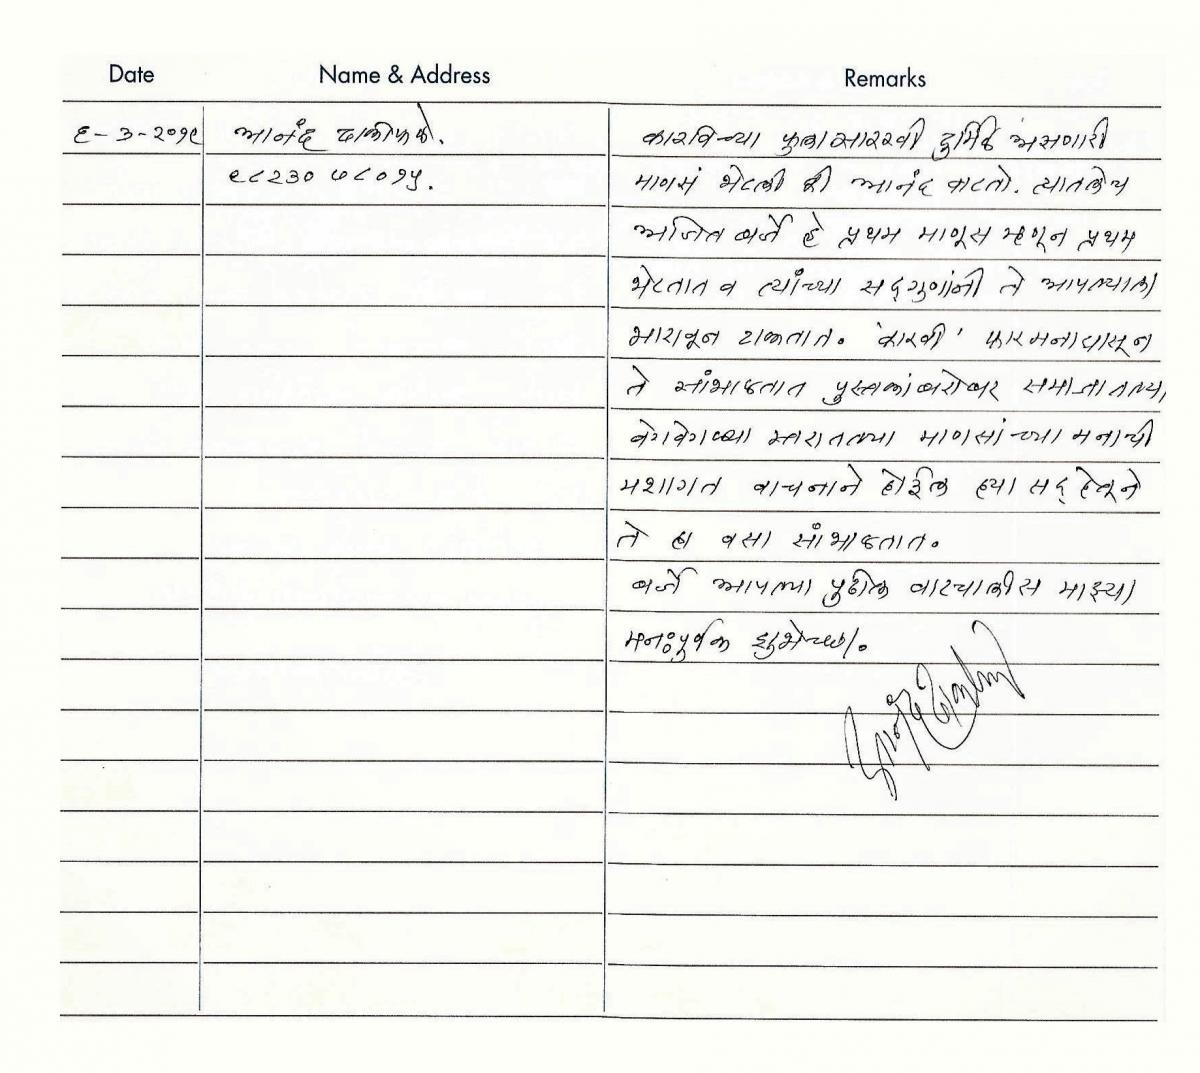 Date Name & Address Remarks
६-३-२०१९ आनंद
९८२३० ७८०१५.
कारविच्या फुलासारखी दुर्मिळ असणारी
माणसं भेटली की आनंद वाटतो. त्यातलेच
अजित बर्जे हे प्रथम माणूस म्हणून प्रथम
भेटतात व त्यांच्या सद्‌गुणांनी ते आपल्याला
भारावून टाकतात. 'कारवी' फार मनापासून
ते सांभाळतात पुस्तकांबरोबर समाजातल्या
वेगवेगळ्या स्तरातल्या माणसांच्या मनाची
मशागत वाचनाने होईल ह्या सद्‌हेतूने
ते हा वसा सांभाळतात.
बर्जे आपल्या पुढील वाटचालीस माझ्या
मनःपूर्वक शुभेच्छा.